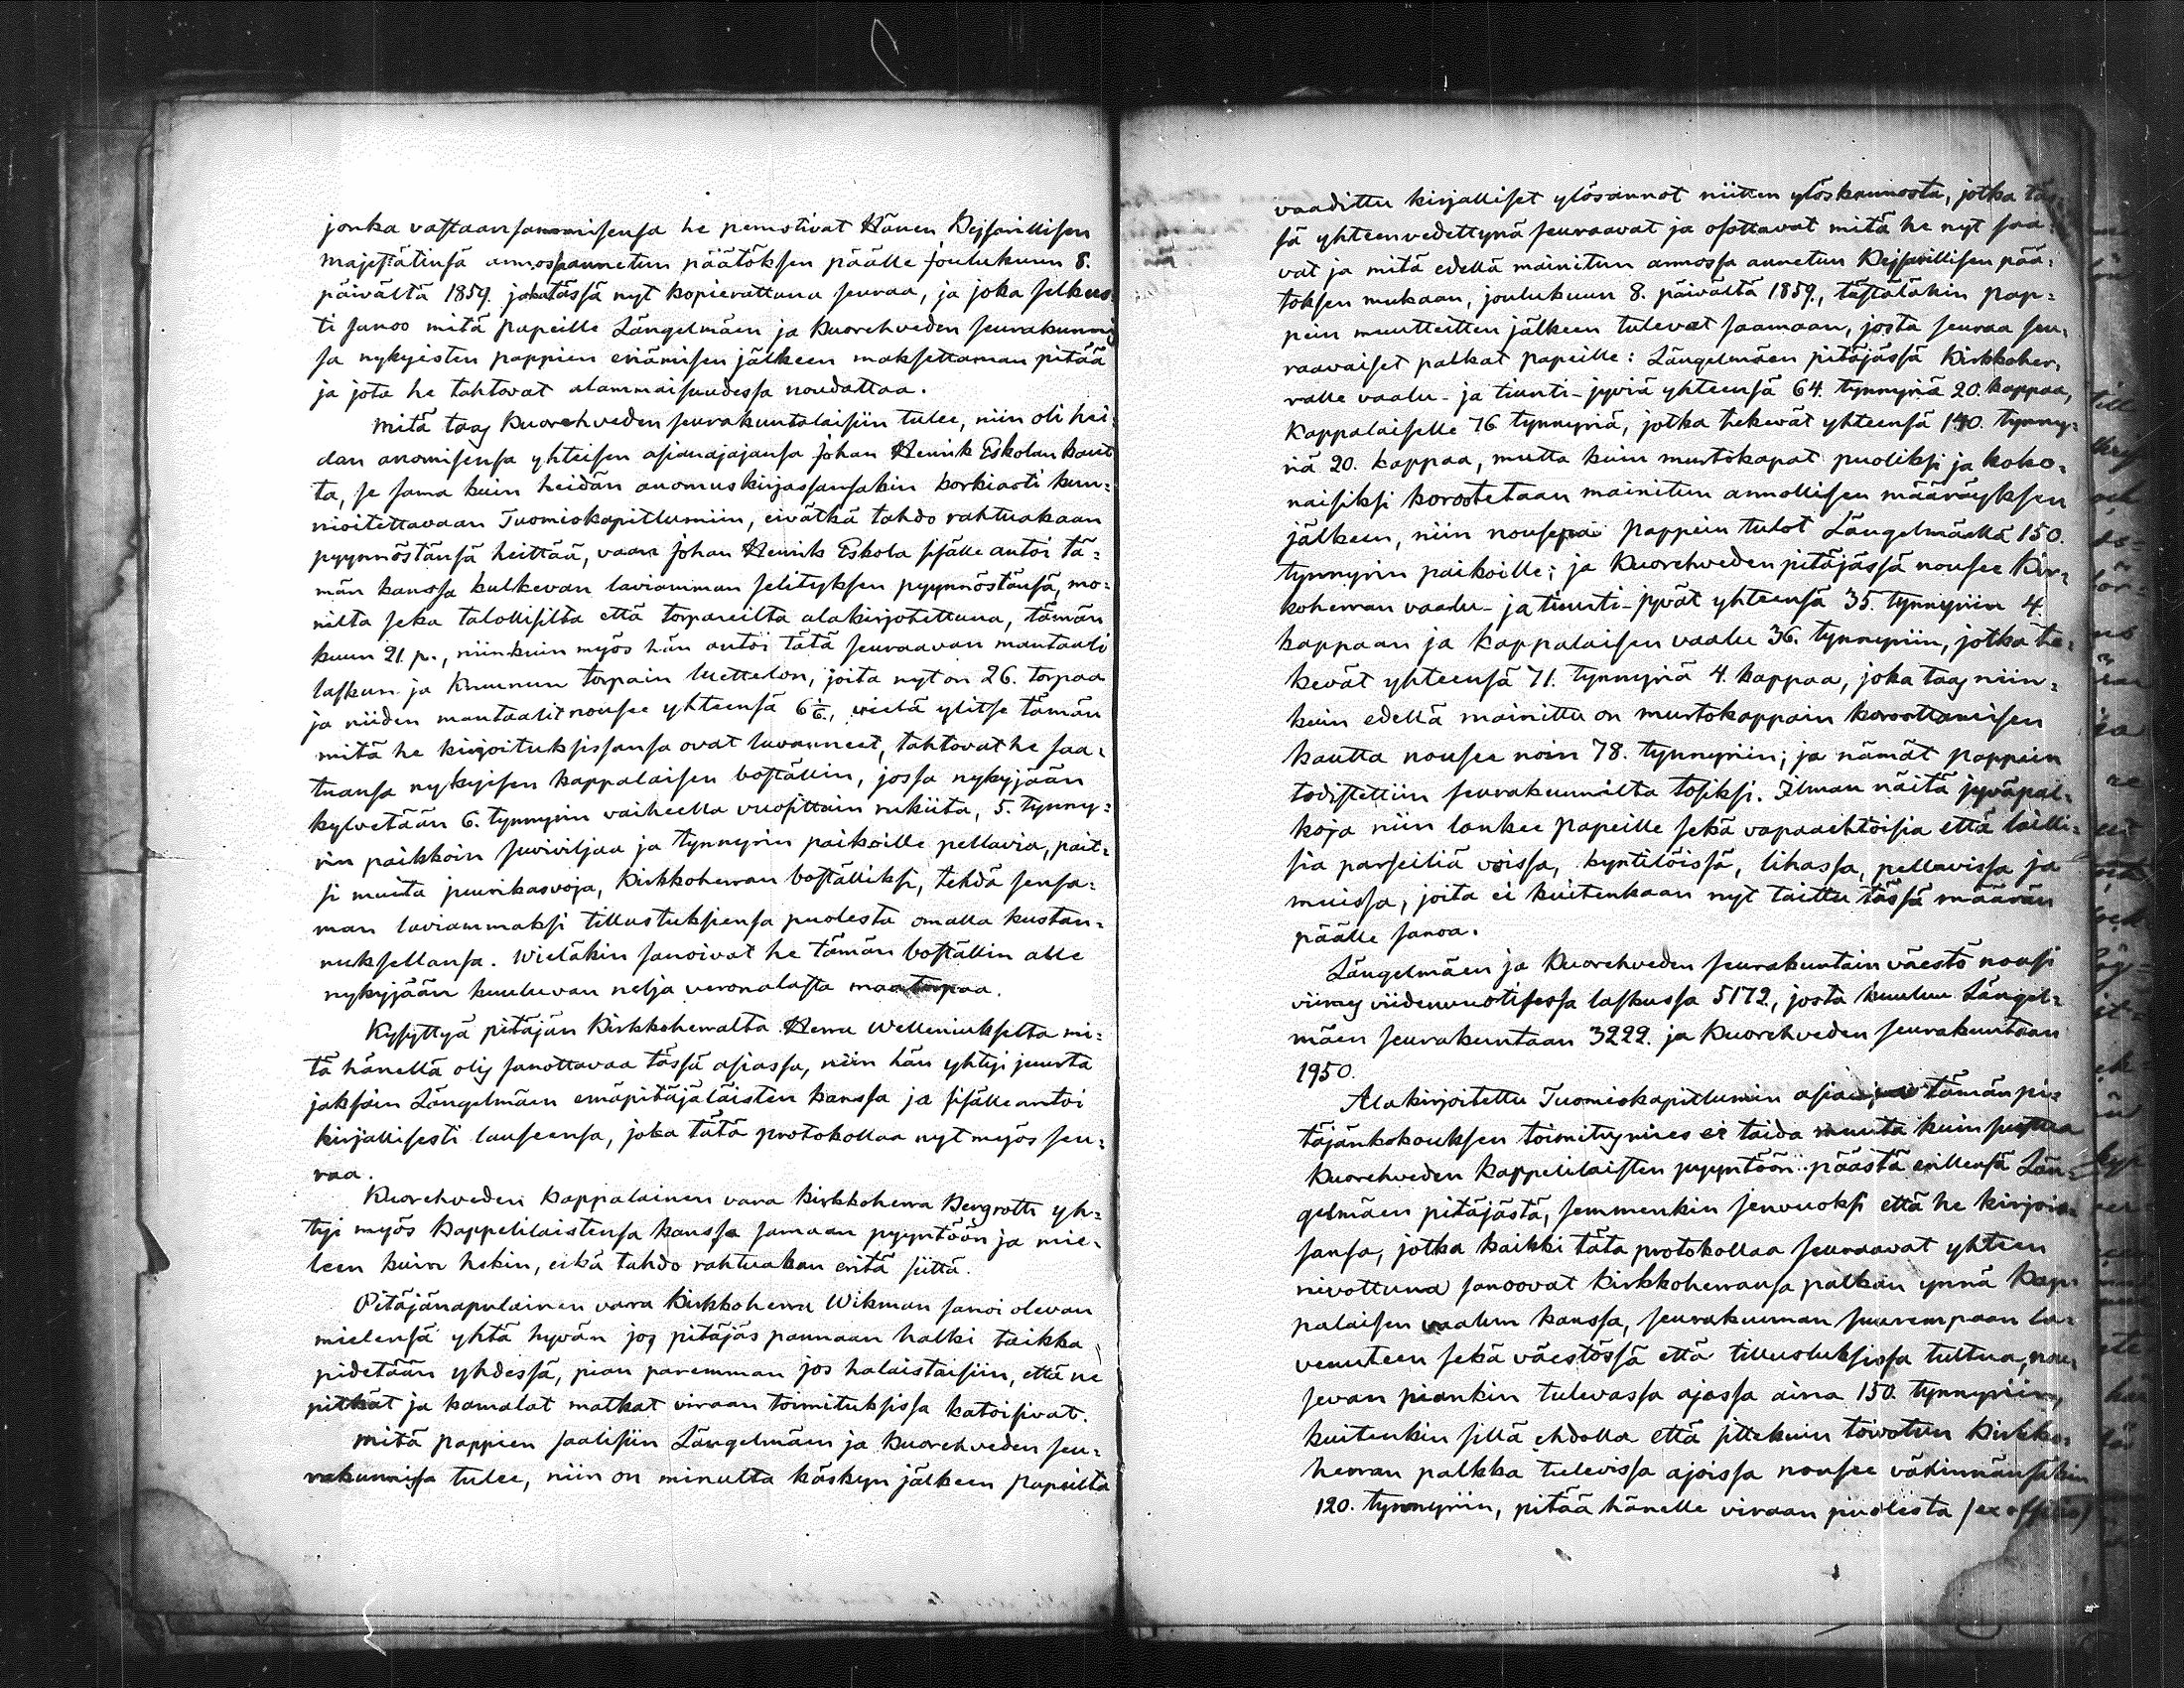 jonka vastaansanomisensa he perustivat Hänen Keisarillisen
Majestätinsä armossa annetun päätöksen päälle Joulukuun 8.
päivältä 1859. joka tässä nyt kopierattuna seuraa, ja joka selkeäs-
ti sanoo mitä papeille Längelmäen ja Kuorehveden seurakunnis
sa nykyisten pappien eriämisen jälkeen maksettaman pitää
ja jota he tahtovat alammaisuudessa noudattaa.
Mitä taas Kuorehveden seurakuntalaisiin tulee, niin oli hei-
dän anomisensa yhteisen asianajajansa Johan Henrik Eskolan kaut
ta, se sama kuin heidän anomuskirjassansakin korkiasti kun=
nioitettavaan Tuomiokapitlumiin, eivätkä tahdo rahtuakaan
pyynnöstänsä heittää, vaan Johan Henrik Eskola sisälle antoi tä=
män kanssa kulkevan laviamman selityksen pyynnöstänsä, mo=
nilta sekä talollisilta että torpareilta alakirjotettuna, tämän
kuun 21. p., niinkuin myös hän antoi tätä seuraavan mantaali
laskun ja Kruunun torpain luettelon, joita nyt on 26. torpaa
ja niiden mantaalit nousee yhteensä 6 1/6., vielä ylitse tämän
mitä he kirjoituksissansa ovat luvanneet, tahtovat he saa=
tuansa nykyisen kappalaisen boställin, jossa nykyjään
kylvetään 6. tynnyrin vaiheella vuosittain rukiita, 5. tynny=
rin paikkoin suviviljaa ja tynnyrin paikoille pellavia, pait=
si muita juurikasvoja, Kirkkoherran boställiksi, tehdä sensa=
man laviammaksi tillustuksiensa puolesta omalla kustan=
nuksellansa. Wieläkin sanoivat he tämän boställin alle
nykyjään kuuluvan neljä veronalasta maatorpaa.
Kysyttyä pitäjän Kirkkoherralta Herra Welleniukselta mi=
tä hänellä olis sanottavaa tässä asiassa, niin hän yhtyi juurta
jaksain Längelmäen emäpitäjäläisten kanssa ja sisälle antoi
kirjallisesti lauseensa, joka tätä protokollaa nyt myös seu=
raa.
Kuorehveden Kappalainen vara kirkkoherra Bergroth yh=
tyi myös Kappelilaistensa kanssa samaan pyyntöön ja mie=
leen kuin hekin, eikä tahdo rahtuakan eritä siitä.
Pitäjänapulainen vara Kirkkoherra Wikman sanoi olevan
mielensä yhtä hyvän jos pitäjäs pannaan halki taikka
pidetään yhdessä, pian paremman jos halaistaisiin, että ne
pitkät ja kamalat matkat viraan toimituksissa katoisivat.
Mitä pappien saalisiin Längelmäen ja Kuorehveden seu=
rakunnissa tulee, niin on minulta käskyn jälkeen papeilta
vaadittu kirjalliset ylösannot niitten ylöskannosta, jotka täs-
sä yhteenvedettynä seuraavat ja osottavat mitä he nyt saa=
vat ja mitä edellä mainitun armossa annetun Keisarillisen pää=
töksen mukaan, joulukuun 8. päivältä 1859., tästäläkin pap=
pein muutteitten jälkeen tulevat saamaan, josta seuraa seu=
raavaiset palkat papeille: Längelmäen pitäjässä Kirkkoher=
ralle vaalu- ja tiunti-jyviä yhteensä 64. tynnyriä 20. kappaa,
Kappalaiselle 76 tynnyriä, jotka tekevät yhteensä 140. tynny=
riä 20. kappaa, mutta kuin murtokapat puoliksi ja koko=
naisiksi korostetaan mainitun armollisen määräyksen
jälkeen, niin nousepa pappein tulot Längelmäellä 150.
tynnyrin paikoille; ja Kuorehveden pitäjässä nousee Kir=
koherran vaalu- ja tiunti-jyvät yhteensä 35. tynnyriin 4.
kappaan ja Kappalaisen vaalu 36. tynnyriin, jotka te=
kevät yhteensä 71. tynnyriä 4. kappaa, joka taas niin=
kuin edellä mainittu on murtokappain korottamisen
kautta nousee noin 78. tynnyriin; ja nämät pappein
todistettiin seurakunnilta tosiksi. Ilman näitä jyväpal=
koja niin lankee papeille sekä vapaaehtoisia että lailli=
sia parseiliä voissa, kyntilöissä, lihassa, pellavissa ja
muissa, joita ei kuitenkaan nyt taittu tässä määrän
päälle sanoa.
Längelmäen ja Kuorehveden seurakuntain väestö nousi
viimes viidenvuotisessa laskussa 5172, josta kuuluu Längel=
mäen seurakuntaan 3222. ja Kuorehveden seurakuntaan
1950.
Alakirjoitettu Tuomiokapitlumin asian tämän pi=
täjänkokouksen toimitusmies ei taida muuta kuin puoltaa
Kuorehveden Kappelilaisten pyyntöön päästä erillensä Län=
gelmäen pitäjästä, semmenkin senvuoksi että he kirjois-
sansa, jotka kaikki tätä protokollaa seuraavat yhteen
nivottuna sanoovat Kirkkoherransa palkan ynnä Kap=
palaisen vaalun kanssa, seurakunnan suurempaan la=
veuuteen sekä väestössä että tillustuksissa tultua, nou=
sevan piankin tulevassa ajassa aina 150. tynnyriin,
kuitenkin sillä ehdolla että sittekuin toivotun Kirkko=
herran palkka tulevissa ajoissa nousee vähinnänsäkin
120. tynnyriin, pitää hänelle viraan puolesta (ex officio)